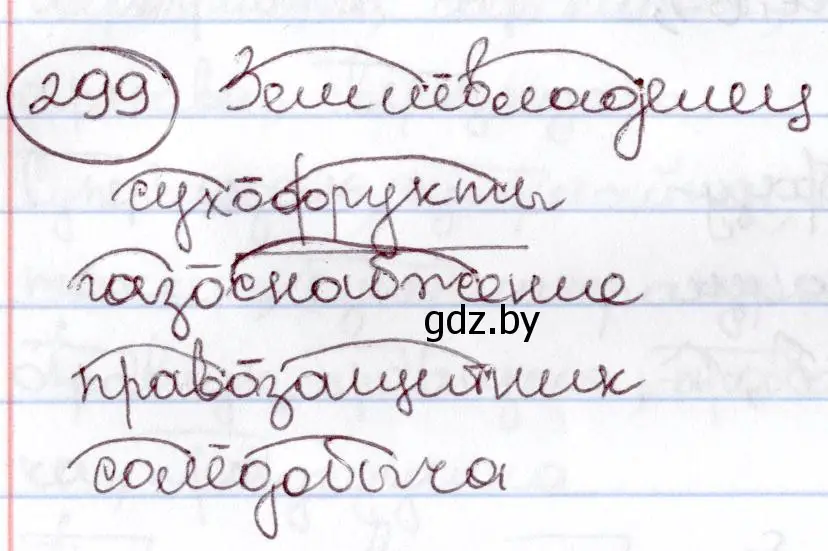 299 Землевладелец
сухофрукты
газоснабжение
gdz.by
правозащитник
соледобыча